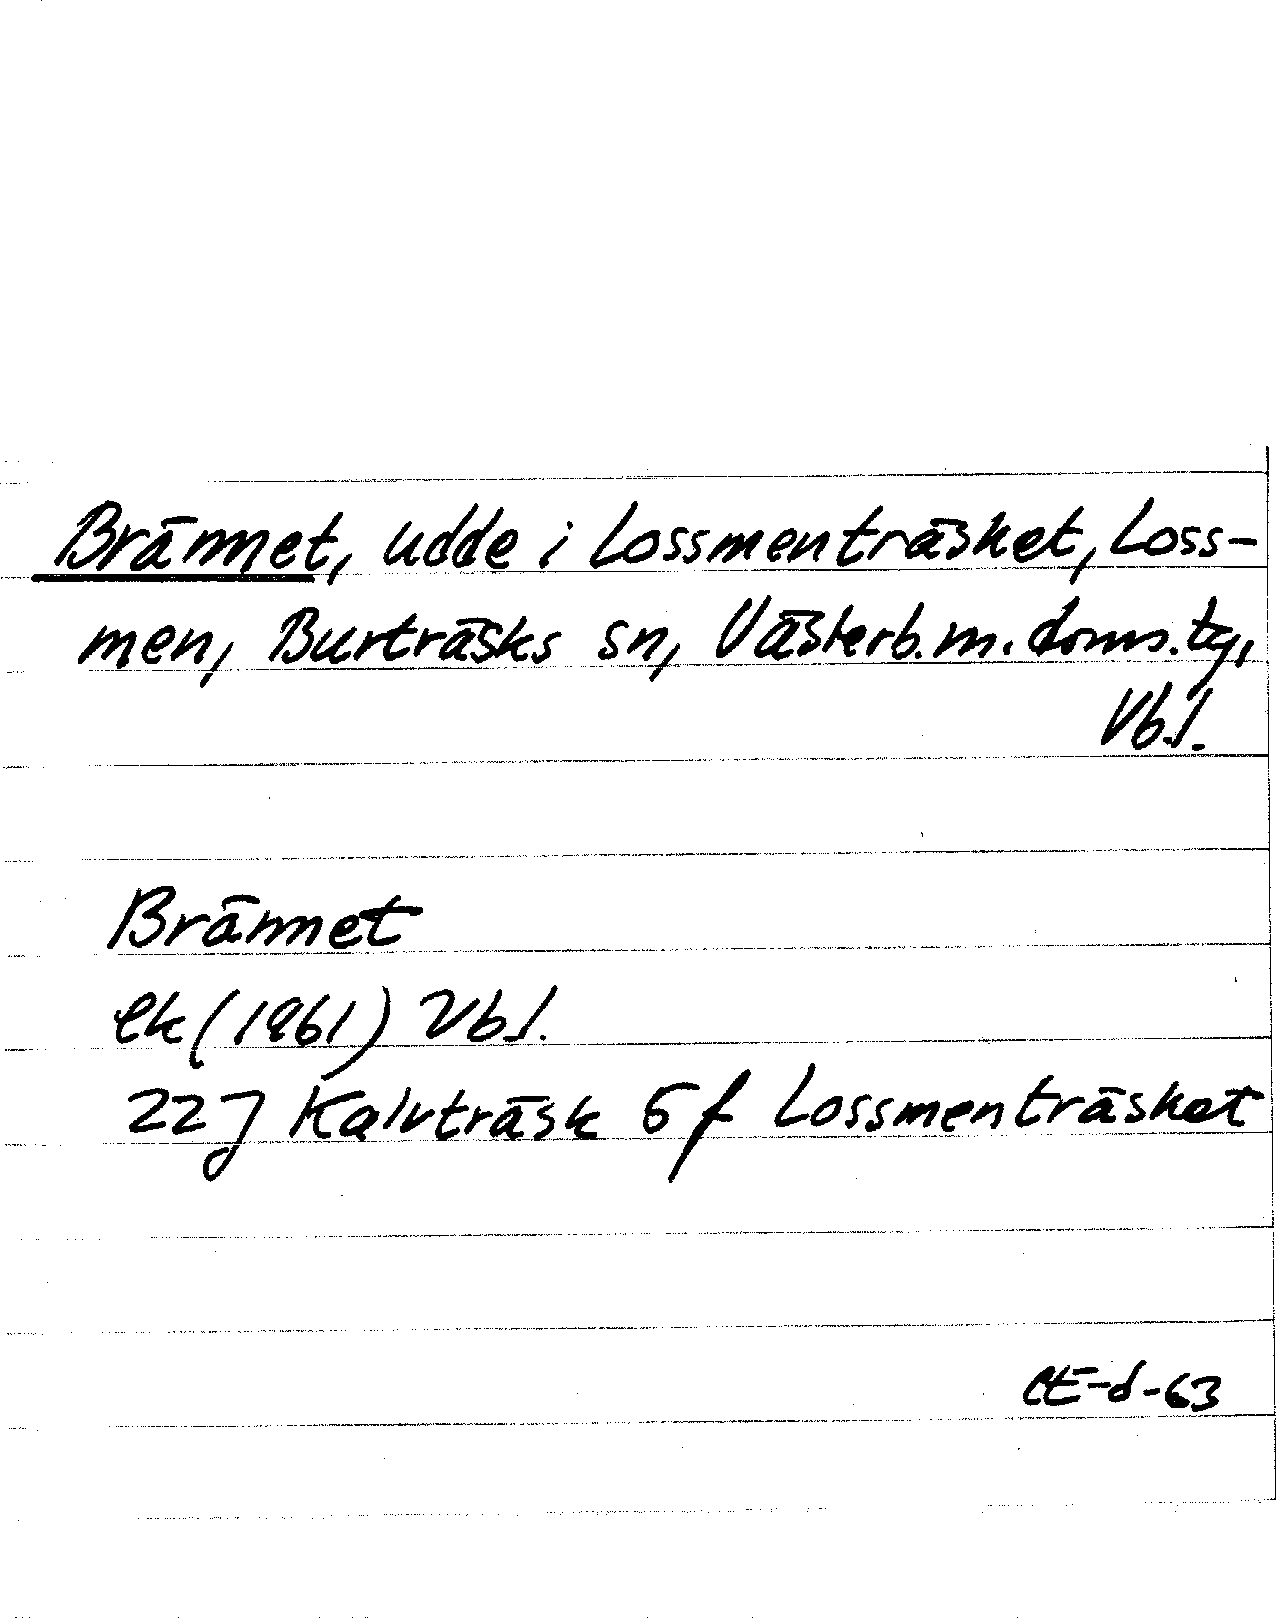 Brännet, udde i Lossmenträsket, Loss-
men, Burträsks sn, Västerb. m. doms. tg,
Vb.l.
Brännet
ek (1961) Vb l.
22 J Kalvträsk 6 f Lossmenträsket
CE-d-63